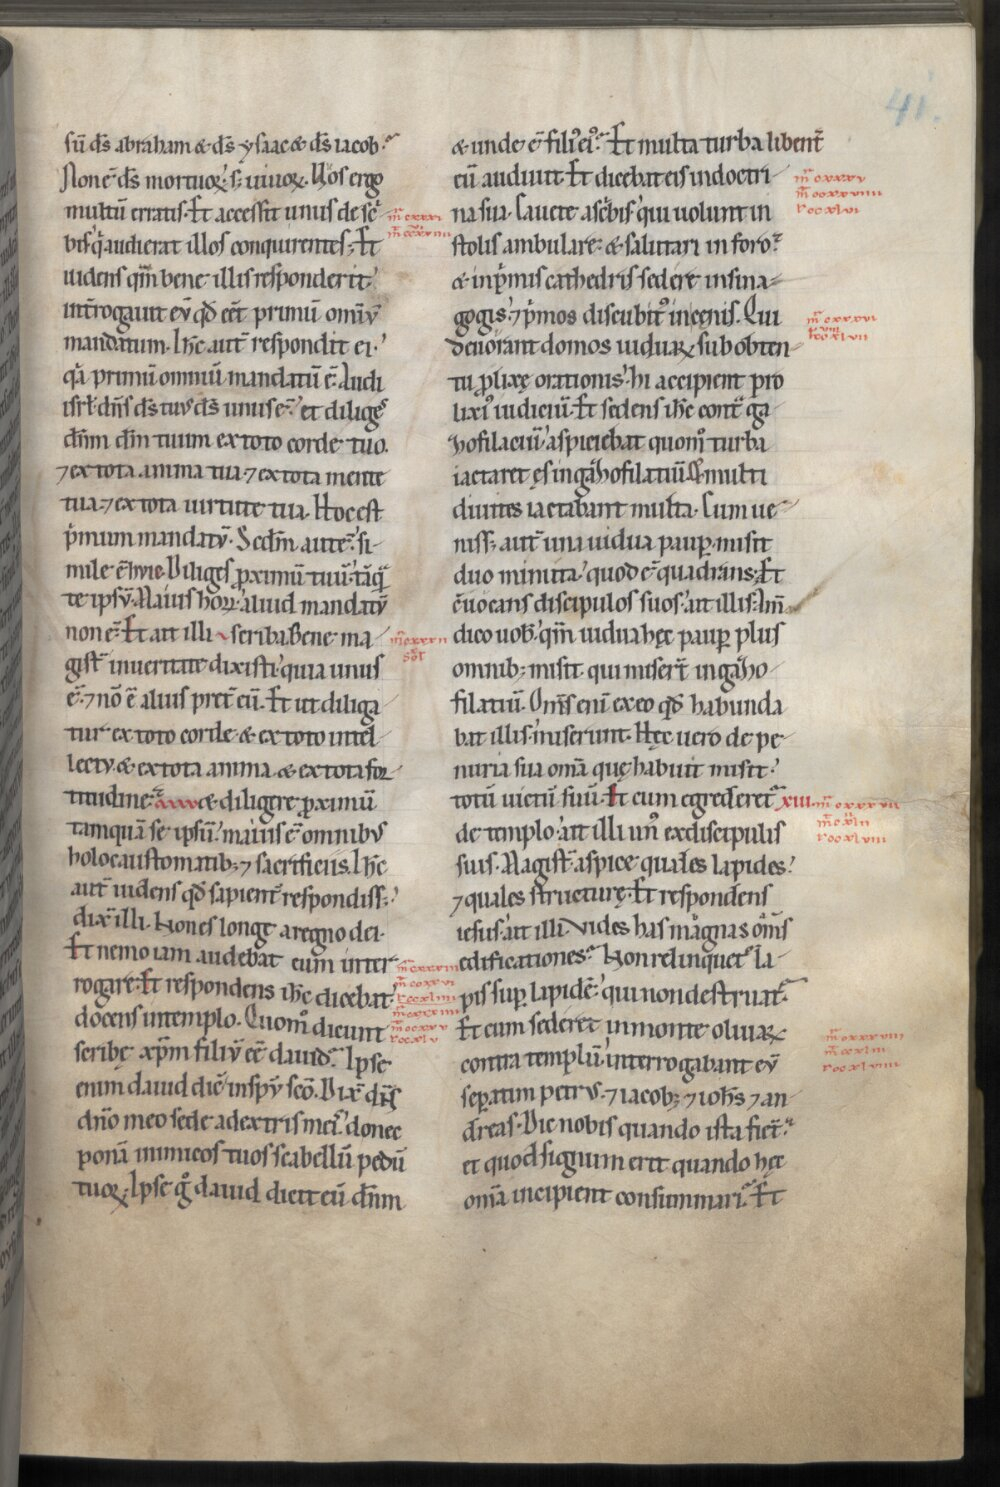 41.
sū ds̄ abraham & ds̄ ysaac & ds̄ iacob.
Non ē ds̄ mortuoꝝ. s; uiuoꝝ. Vos ergo
multū erratis. Et accessit unus de sc̄
bis q̄ audierat illos conquirentes. Et
uidens qm̄ bene illis responderit.
intr̄rogauit eū qd̄ eēt primū omīū
mandatum. Ihc̄ aut̄ respondit ei.
q̄a primū omniū mandatū ē. Audi
isrl̄ dn̄s ds̄ tuus ds̄ unus ē. et diliges
dn̄m dm̄ tuum ex toto corde tuo.
⁊ ex tota anima tua ⁊ ex tota mente
tua. ⁊ ex tota uirtute tua. Hoc est
p̄mum mandatū. Secdm̄ autē. si
mile ē huic. Diliges ꝓximū tuū. tāq̄
te ipsū. Maius hoꝝ aliud mandatū
non ē. Et ait illi scriba. Bene ma
gist̄ in ueritate dixisti. quia unus
ē. ⁊ nō ē alius pret̄ eū. Et ut diliga
tur ex toto corde & ex toto intel
lectu & ex tota anima & ex tota for
titudine. & diligere ꝓximū
tamquā se ipsū. maius ē omnibus
holocaustomatib; ⁊ sacrificiis. Ihc̄
aut̄ uidens qd̄ sapient̄ respondiss;
dix̄ illi. Non es longe a regno dei.
Et nemo iam audebat eum inter
rogare. Et respondens ihc̄ dicebat
docens in templo. Quom̊ dicunt
scribę xpm̄ filiū eē dauid. Ipse
enim dauid dic̄ in spū scō. Dix̄ dn̄s
dn̄o meo sede a dextris meis. donec
ponā inimicos tuos scabellū pedū
tuoꝝ. Ipse g̊ dauid dicit eū dn̄m
& unde ē filiꝰ eiꝰ. Et multa turba libent̄
eū audiuit. Et dicebat eis in doctri
na sua. Cauete a sc̄bis qui uolunt in
stolis ambulare. & salutari in foro.
& in p̄mis cathedris sedere in sina
gogis. ⁊ p̄mos discubitꝰ in cęnis. Qui
deuorant domos uiduaꝝ sub obten
tu ꝓlixę orationis. hi accipient pro
lixiꝰ iudiciū. Et sedens ihc̄ contra ga
zofilaciū. aspiciebat quom̊ turba
iactaret ęs in gazofilatiū. & multi
diuites iactabant multa. Cum ue
niss; aut̄ una uidua pauꝑ. misit
duo minuta. quod ē quadrans. Et
cōuocans discipulos suos. ait illis. Am̄
dico uob̄. qm̄ uidua hęc pauꝑ plus
omnib; misit. qui miser̄t in gazo
filatiū. Om̄s eni ex eo qd̄ habunda
bat illis. miserunt. Hęc uero de pe
nuria sua om̄a quę habuit misit.
totū uictū suū. Et cum egrederet̄ XIII.
de templo. ait illi unꝰ ex discipulis
suis. Magist̄ aspice quales lapides.
⁊ quales structurę. Et respondens
iesus. ait illi. Vides has magnas om̄s
edificationes. Non relinquet̄ la
pis suꝑ lapidē. qui non destruat̄.
Et cum sederet in monte oliuaꝝ
contra templū. interrogabant eū
seꝑatim petrus. ⁊ iacob; ⁊ ioh̄s ⁊ an
dreas. Dic nobis quando ista fient.
et quod signum erit quando hęc
om̄a incipient consummari. Et